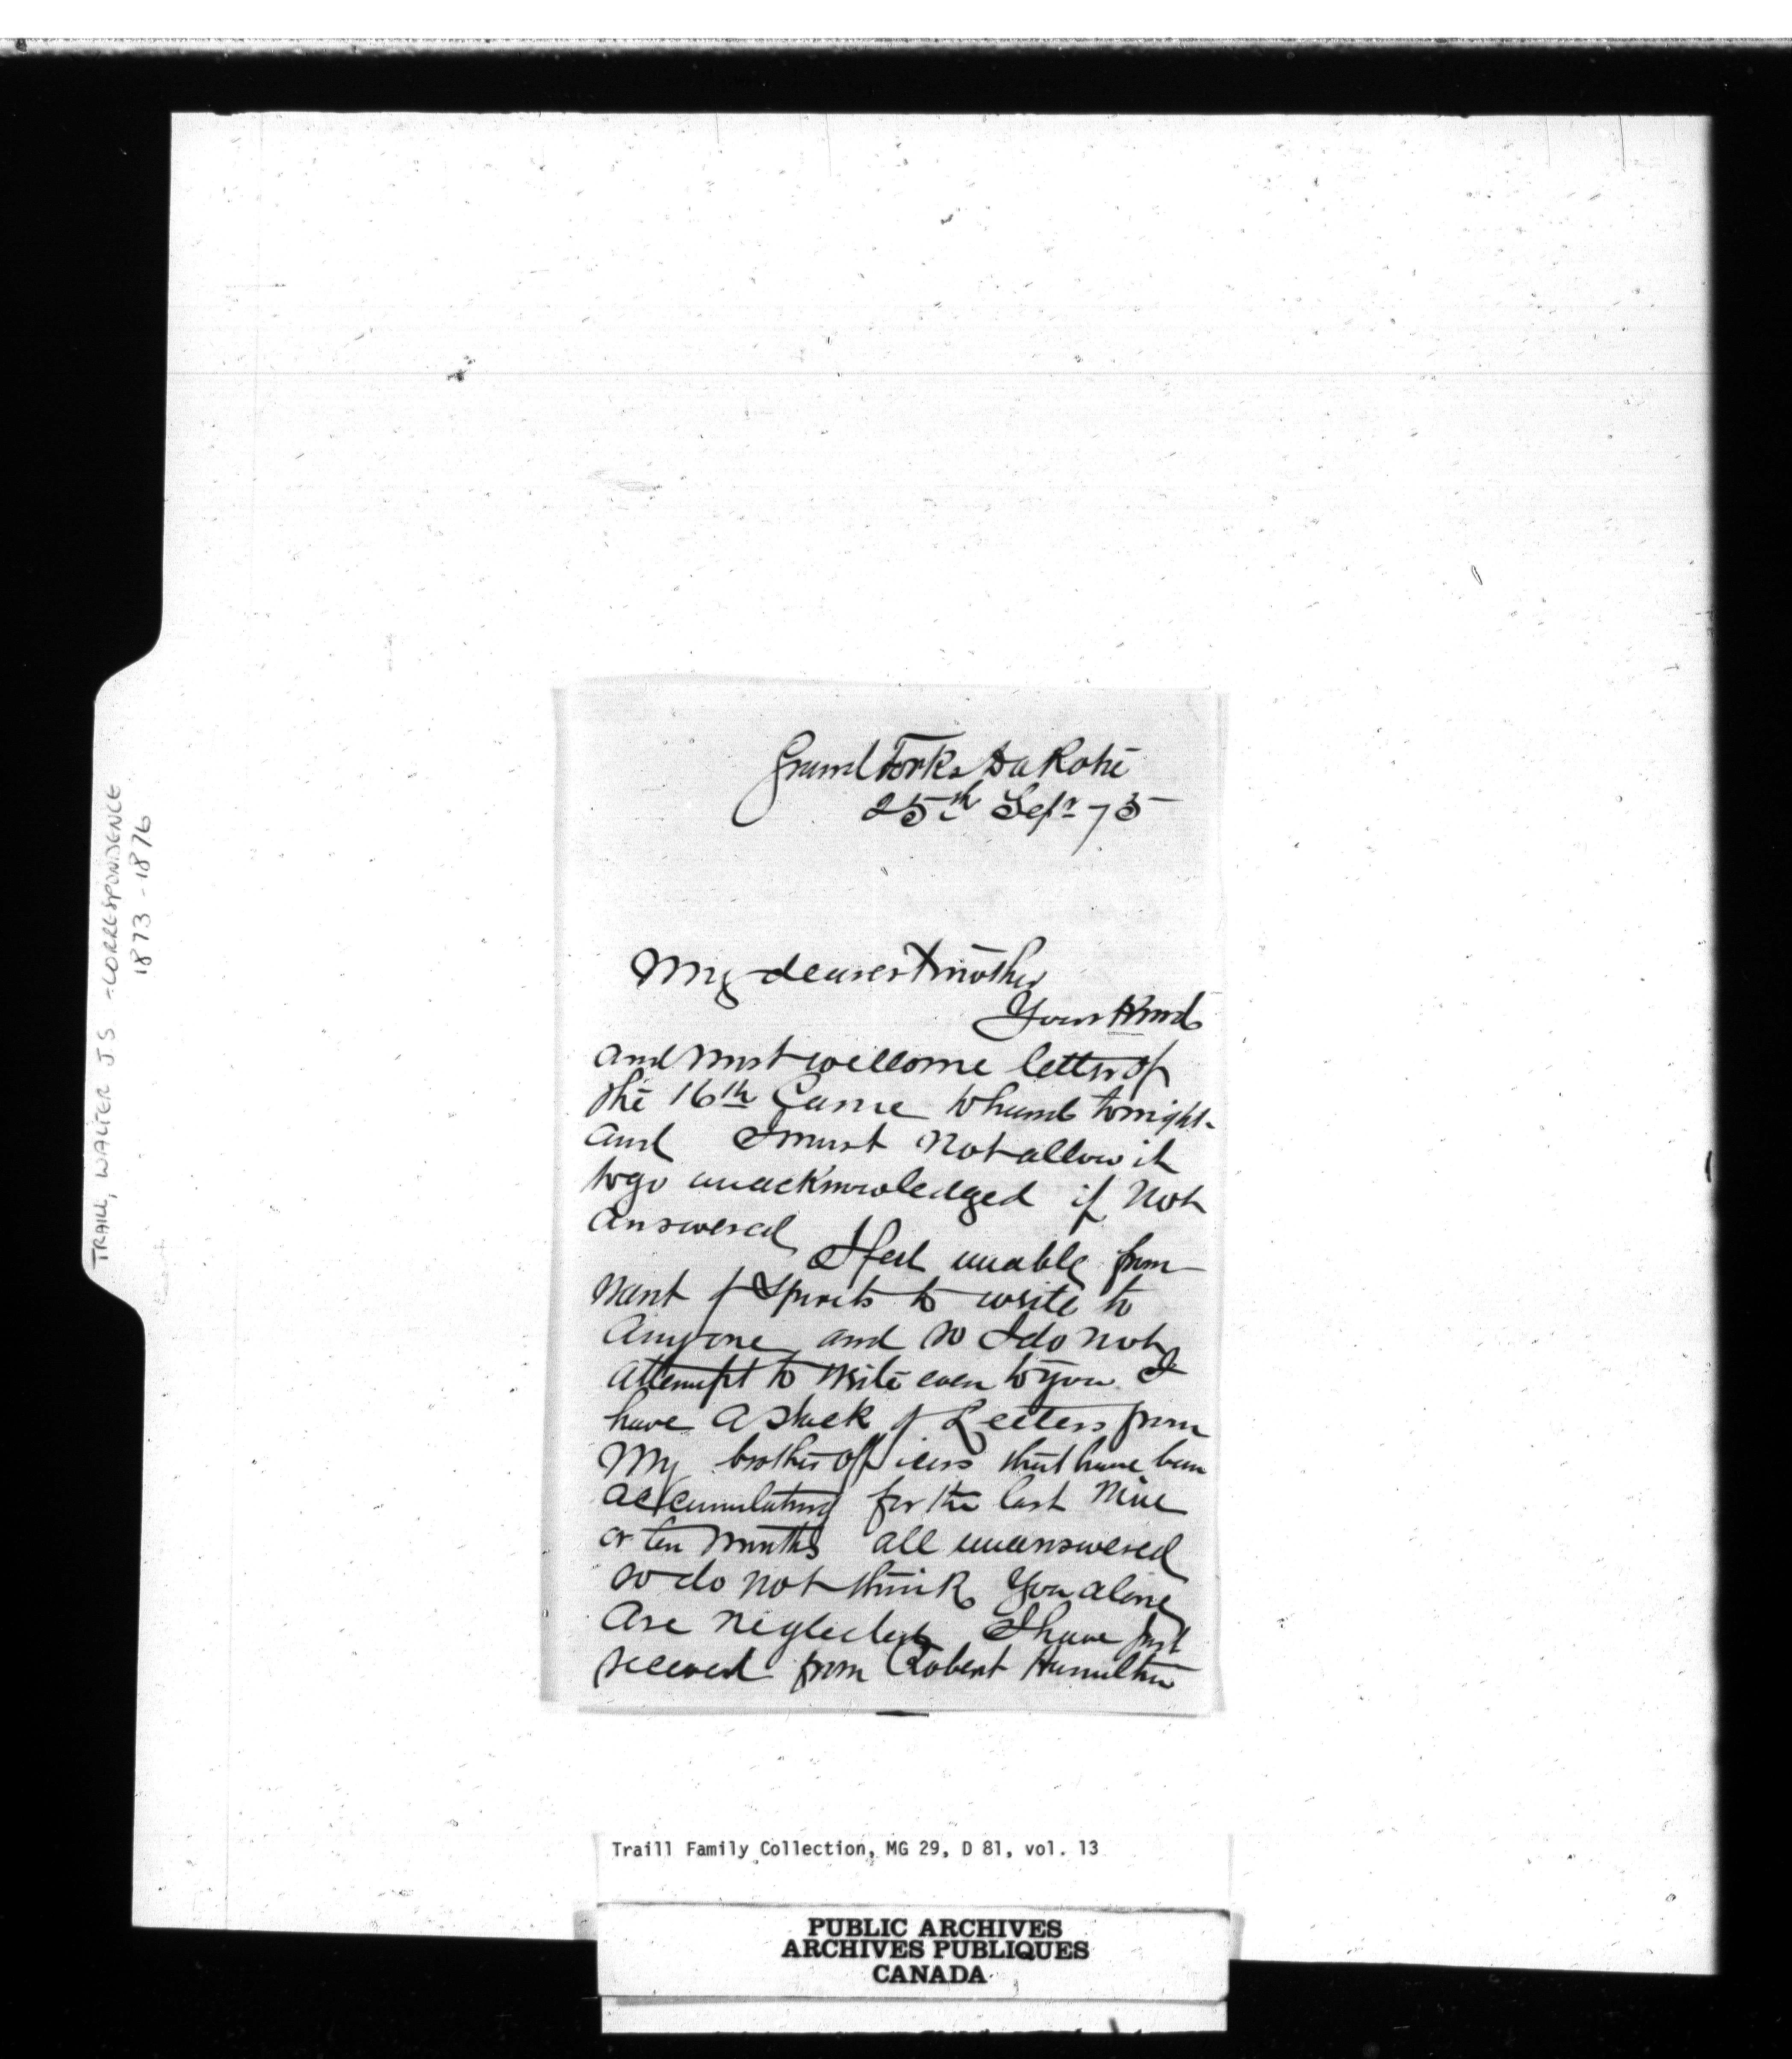 TRAILL, WALTER JS - CORRESPONDENCE
1873 - 1876
Grand Forks Dakota
25th Sepr 75
My dearest Mother
Your kind
and most wellcome letter of
the 16th Came to hand tonight
and I must Not allow it
to go unacknowledged if Not
answered
I feel unable from
want of Spirits to write to
Anyone and so I do not
attempt to write even to you I
have a stack of Letters from
My brother officers that have been
accumulating for the last Nine
or ten months all unanswered
so do not think You alone
Are neglected I have just
received from Robert Hamilton
Traill Family Collection, MG 29, D 81, vol. 13
PUBLIC ARCHIVES
ARCHIVES PUBLIQUES
CANADA